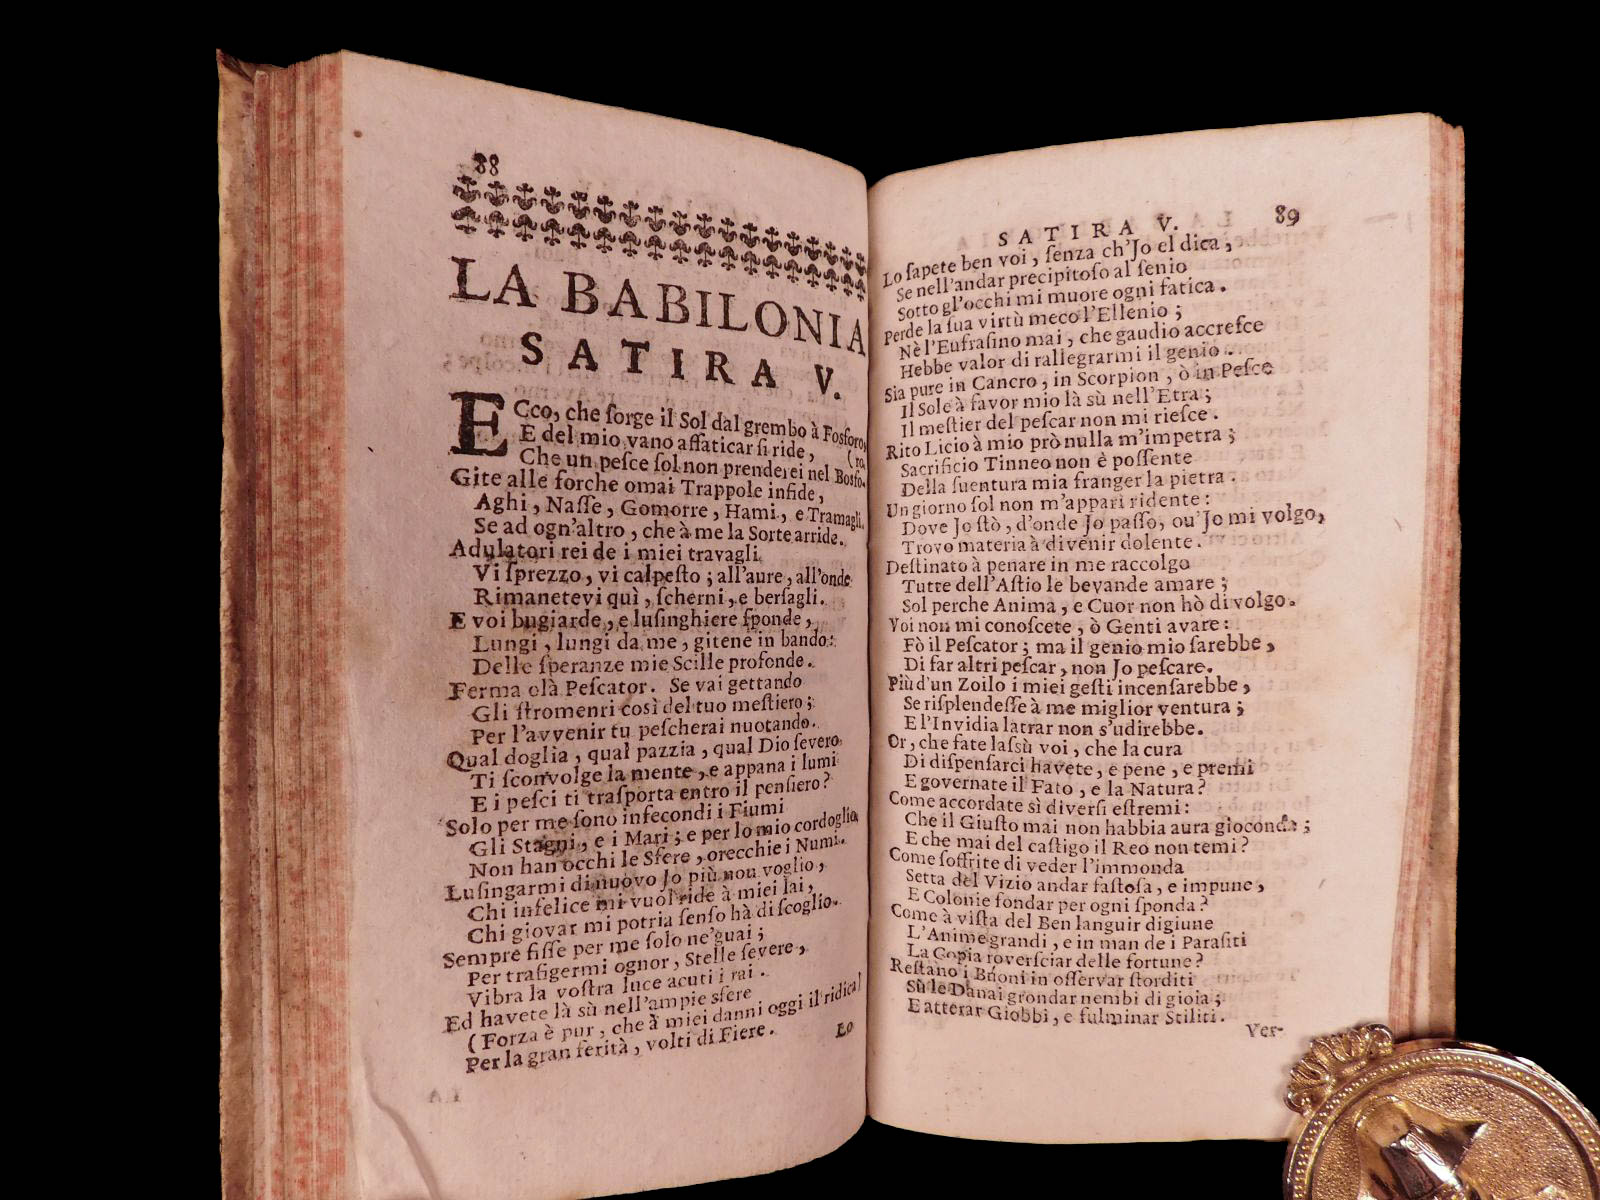 88
LA BABILONIA
SATIRA V.
ECco, che ſorge il Sol dal grembo à Fosforo,
E del mio vano affaticar ſi ride,
(ro,
Che un peſce ſol non prenderei nel Bosfo-
Gite alle forche omai Trappole infide,
Aghi, Naſſe, Gomorre, Hami, e Tramagli.
Se ad ogn'altro, che à me la Sorte arride.
Adulatori rei de i miei travagli
Vi ſprezzo, vi calpeſto; all'aure, all'onde
Rimanetevi quì, ſcherni, e berſagli.
E voi bugiarde, e luſinghiere ſponde,
Lungi, lungi da me, gitene in bando:
Delle ſperanze mie Scille profonde.
Ferma olà Peſcator. Se vai gettando
Gli ſtromenri così del tuo meſtiero;
Per l'avvenir tu peſcherai nuotando.
Qual doglia, qual pazzia, qual Dio ſevero
Ti ſconvolge la mente, e appana i lumi
E i peſci ti traſporta entro il penſiero?
Solo per me ſono infecondi i Fiumi
Gli Stagni, e i Mari; e per lo mio cordoglio
Non han occhi le Sfere, orecchie i Numi.
Luſingarmi di nuovo Jo più non voglio,
Chi infelice mi vuol ride à miei lai,
Chi giovar mi potria ſenſo hà di ſcoglio.
Sempre fiſſe per me ſolo ne'guai;
Per trafigermi ognor, Stelle ſevere,
Vibra la voſtra luce acuti i rai.
Ed havete là sù nell'ampie sfere
(Forza è pur, che à miei danni oggi il ridica)
Per la gran ferità, volti di Fiere.
Lo
SATIRA V.
89
Lo ſapete ben voi, ſenza ch'Jo el dica,
Se nell'andar precipitoſo al ſenio
Sotto gl'occhi mi muore ogni fatica.
Perde la ſua virtù meco l'Ellenio;
Nè l'Eufraſino mai, che gaudio accreſce
Hebbe valor di rallegrarmi il genio.
Sia pure in Cancro, in Scorpion, ò in Peſce
Il Sole à favor mio là sù nell'Etra;
Il meſtier del peſcar non mi rieſce.
Rito Licio à mio prò nulla m'impetra;
Sacrificio Tinneo non è poſſente
Della ſuentura mia franger la pietra.
Un giorno ſol non m'appari ridente:
Dove Jo ſtò, d'onde Jo paſſo, ou'Jo mi volgo,
Trovo materia à divenir dolente.
Deſtinato à penare in me raccolgo
Tutte dell'Aſtio le bevande amare;
Sol perche Anima, e Cuor non hò di volgo.
Voi non mi conoſcete, ò Genti avare:
Fò il Peſcator; ma il genio mio ſarebbe,
Di far altri peſcar, non Jo peſcare.
Più d'un Zoilo i miei geſti incenſarebbe,
Se riſplendeſſe à me miglior ventura;
E l'Invidia latrar non s'udirebbe.
Or, che fate laſsù voi, che la cura
Di diſpenſarci havete, e pene, e premi
E governate il Fato, e la Natura?
Come accordate sì diverſi eſtremi:
Che il Giuſto mai non habbia aura gioconda;
E che mai del caſtigo il Reo non temi?
Come ſoffrite di veder l'immonda
Setta del Vizio andar faſtoſa, e impune,
E Colonie fondar per ogni ſponda?
Come à viſta del Ben languir digiune
L'Anime grandi, e in man de i Paraſiti
La Copia roverſciar delle fortune?
Reſtano i Buoni in oſſervar ſtorditi
Sù le Danai grondar nembi di gioia;
E atterar Giobbi, e fulminar Stiliti.
Ver-